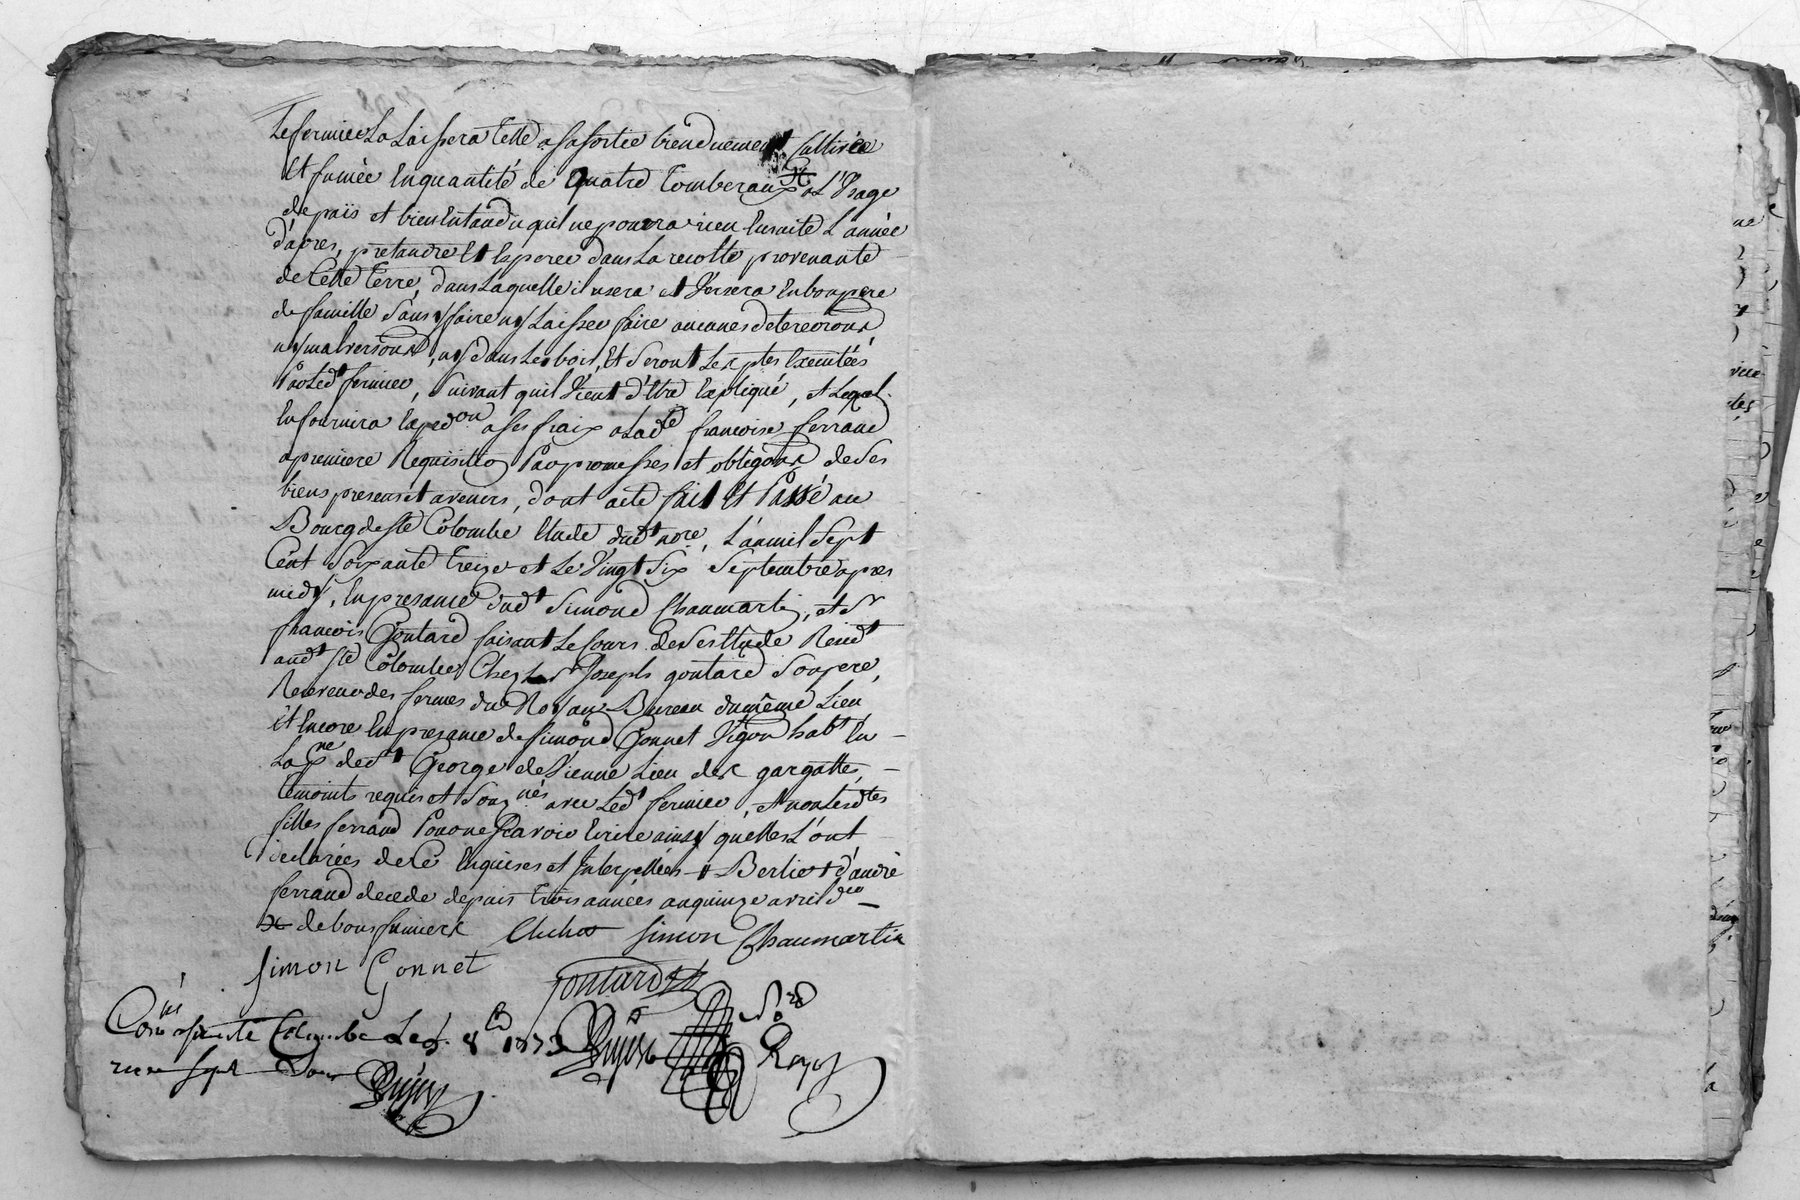 Le fermier La Laissera telle a sa sortie bien duement Cultivée
Et fumée En quantité de quatre tomberaux a L'Usage
de païs et bien Entandu quil ne pourra rien Ensuite L'année
d'apres, pretandre Et Esperer dans La recolte provenante
de Cette terre, dans Laquelle il usera et Versera En bon pere
de famille Sans faire ny Laisser faire aucunes deterrorions
ny malversions, ny dans Les bois, Et Seront Les ptes Executées
Par Ledt fermier, Suivant quil Vient d'être Expliqué, et Lequel
En fournira Expedon a ses fraix a Ladte francoise ferrand
a premiere Requisition Par promesses et obligons de Ses
biens presens et avenirs, dont acte fait Et Passé au
Bourg de Ste Colombe Etude dudt nore, L'an mil Sept
Cent Soixante treize et Le Vingt Six Septembre apres
midy, En presance dudt Simond Chaumartin, et Sr
francois Goutard faisant Le Cours de Ses Etude Residt
audt Ste Colombe Chez Le Sr Joseph goutard Son pere,
Receveur des fermes du Roy au Bureau du même Lieu
Et Encore En presance de Simond Gonnet Vigon habt En
La pne de St George de Vienne Lieu des gargattes,
temoints requis et Sousnés avec Ledt fermier, et non Lesdtes
filles ferrand Pour ne Scavoir Ecrire ainsy qu'elles L'ont
declarées de Ce Enquises et Interpellées + Berlie + d'andré
ferrand decede depuis trois années au quinze avril dr
de bons fumiers simon Chaumartin
simon Gonnet
goutard
Conlé a sainte Colombe Le 8 1773
recu sept sous